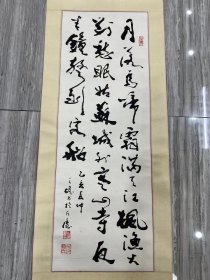 月落乌啼霜满天江枫渔火
对愁眠姑苏城外寒山寺夜
半钟声到客船
乙亥夏